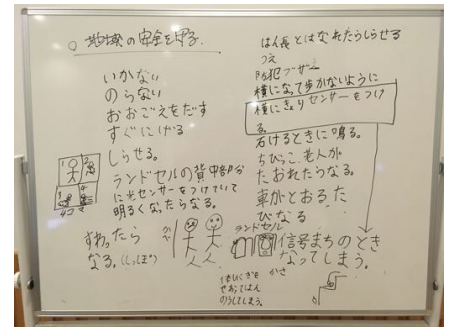 ○ 地域の安全を守る.
いかない
のらない
おおごえをだす
すぐににげる
しらせる。
ランドセルの背中部分
に光センサーをつけていて
明るくなったらなる。
4コマ
すわったら
なる。(しっぽ)
はん長とはなれたらしらせる
つえ
防犯ブザー
横になって歩かないように
横にきょりセンサーをつけ
る。
石けるときに鳴る。
ちびっこ、老人が
たおれたらなる。
車がとおるた
びなる
ランドセル
信号まちのとき
なってしまう。
かさ
せおってはん
のうしてしまう。